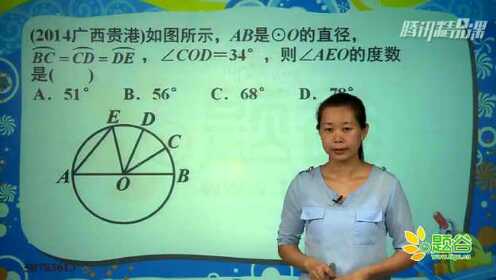 腾讯精品课
(2014广西贵港)如图所示，AB是⊙O的直径，
BC=CD=DE，∠COD=34°，则∠AEO的度数
是( )
A．51° B．56° C．68° D．78°
E
D
C
A
O
B
题谷